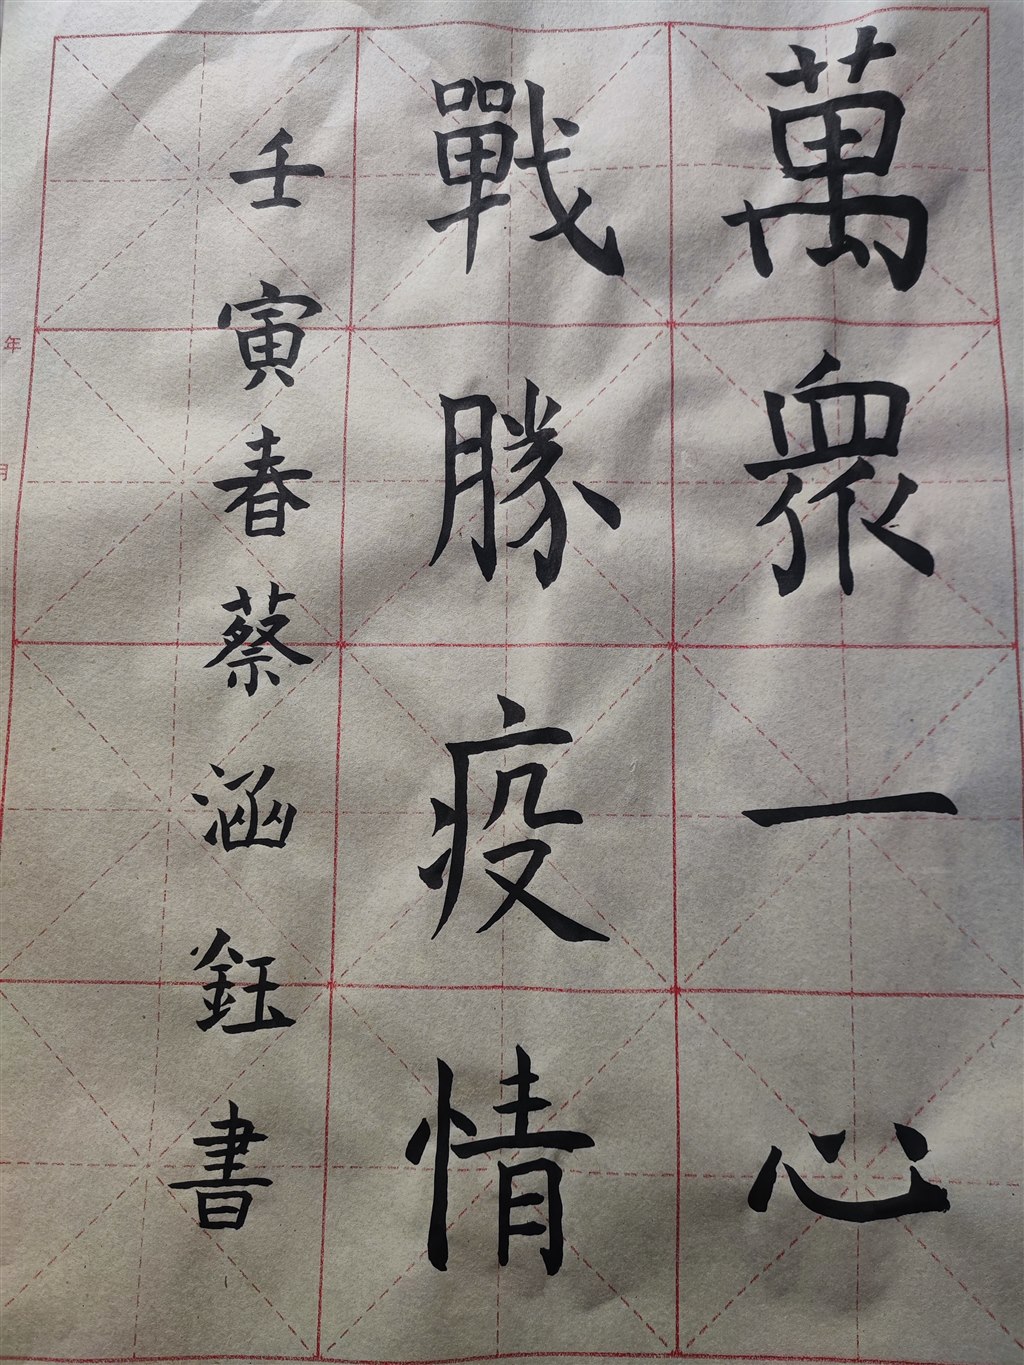 萬眾一心
戰勝疫情
壬寅春蔡涵鈺書
年
月